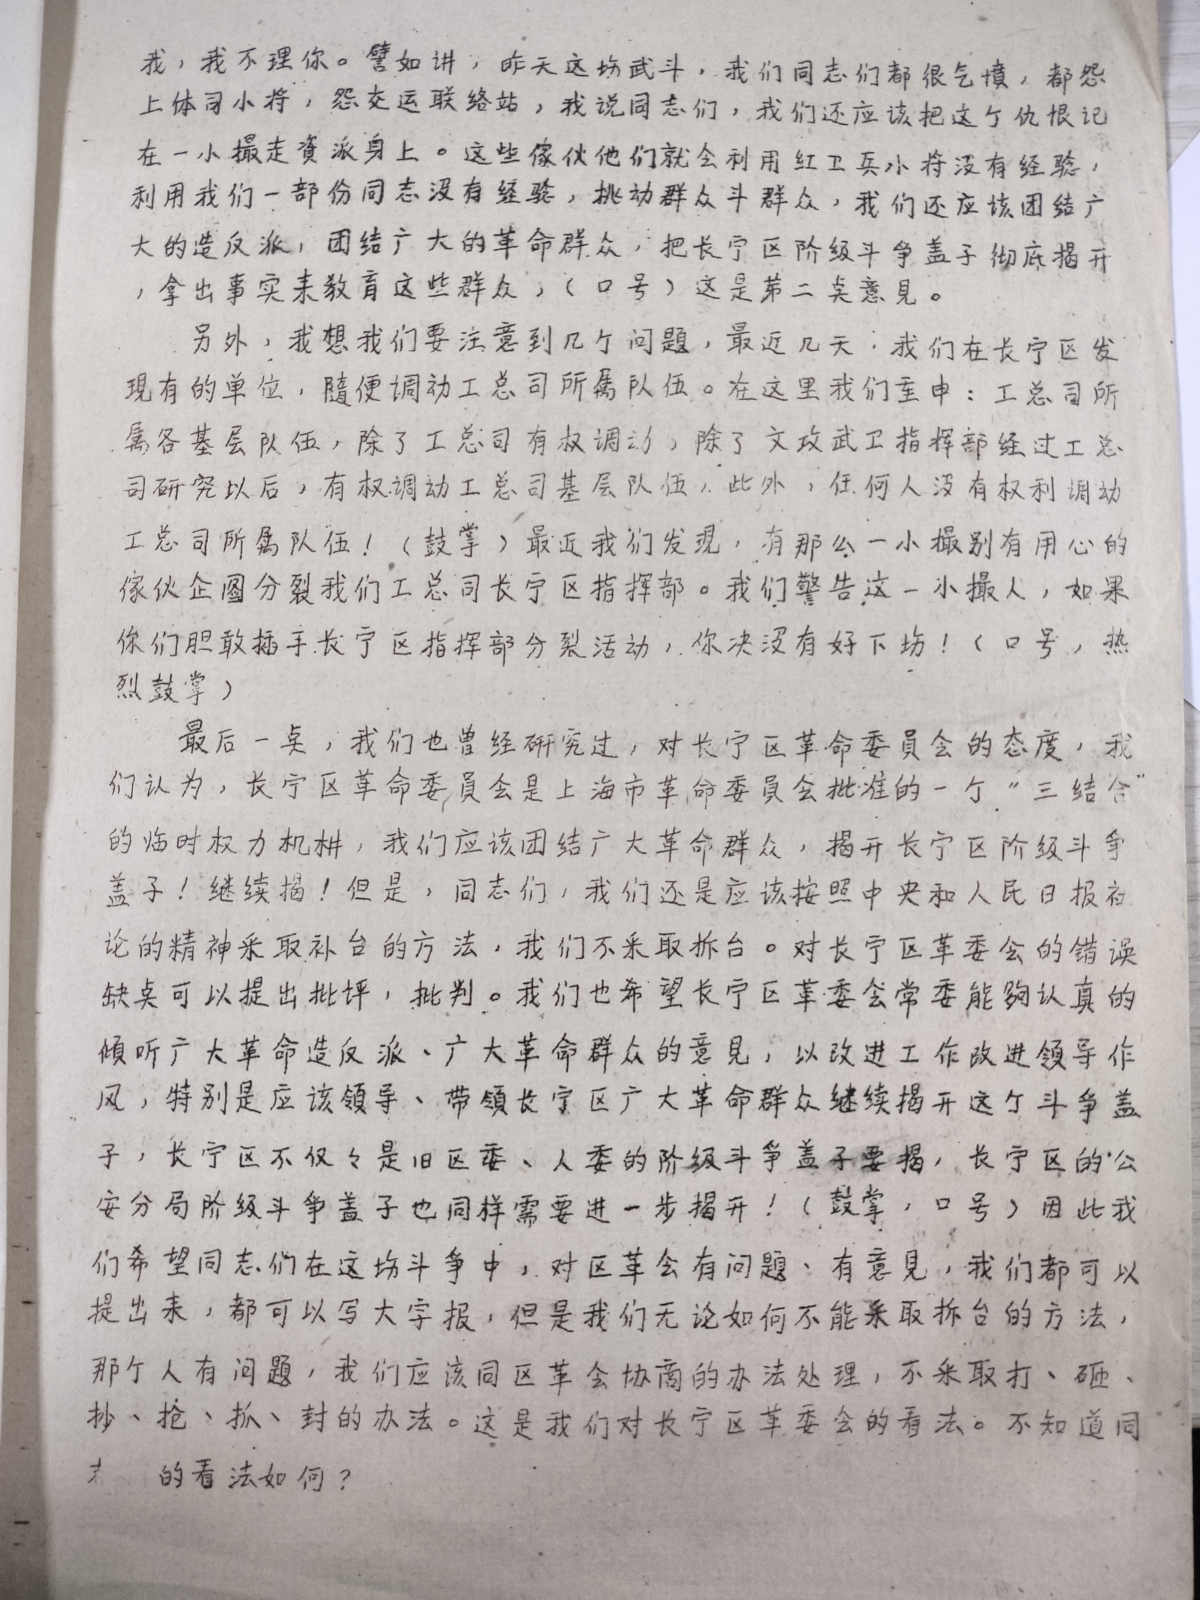 我，我不理你。譬如讲，昨天这场武斗，我们同志们都很气愤，都怨
上体司小将，怨交运联络站，我说同志们，我们还应该把这个仇恨记
在一小撮走資派身上。这些傢伙他们就会利用红卫兵小将没有经验，
利用我们一部份同志没有经验，挑动群众斗群众，我们还应该团结广
大的造反派，团结广大的革命群众，把长宁区阶级斗争盖子彻底揭开
，拿出事实来教育这些群众，（口号）这是第二点意見。
另外，我想我们要注意到几个问题，最近几天，我们在长宁区发
现有的单位，随便调动工总司所属队伍。在这里我们重申：工总司所
属各基层队伍，除了工总司有权调动，除了文攻武卫指挥部经过工总
司研究以后，有权调动工总司基层队伍，此外，任何人没有权利调动
工总司所属队伍！（鼓掌）最近我们发现，有那么一小撮别有用心的
傢伙企圖分裂我们工总司长宁区指挥部。我们警告这一小撮人，如果
你们胆敢插手长宁区指挥部分裂活动，你决没有好下场！（口号，热
烈鼓掌）
最后一点，我们也曾经研究过，对长宁区革命委員会的态度，我
们认为，长宁区革命委員会是上海市革命委員会批准的一个“三结合”
的临时权力机构，我们应该团结广大革命群众，揭开长宁区阶级斗争
盖子！继续揭！但是，同志们，我们还是应该按照中央和人民日报社
论的精神采取补台的方法，我们不采取拆台。对长宁区革委会的错误
缺点可以提出批评，批判。我们也希望长宁区革委会常委能夠认真的
倾听广大革命造反派、广大革命群众的意見，以改进工作改进领导作
风，特别是应该领导、带领长宁区广大革命群众继续揭开这个斗争盖
子，长宁区不仅々是旧区委、人委的阶级斗争盖子要揭，长宁区的公
安分局阶级斗争盖子也同样需要进一步揭开！（鼓掌，口号）因此我
们希望同志们在这场斗争中，对区革会有问题、有意見，我们都可以
提出来，都可以写大字报，但是我们无论如何不能采取拆台的方法，
那个人有问题，我们应该同区革会协商的办法处理，不采取打、砸、
抄、抢、抓、封的办法。这是我们对长宁区革委会的看法。不知道同
的看法如何？